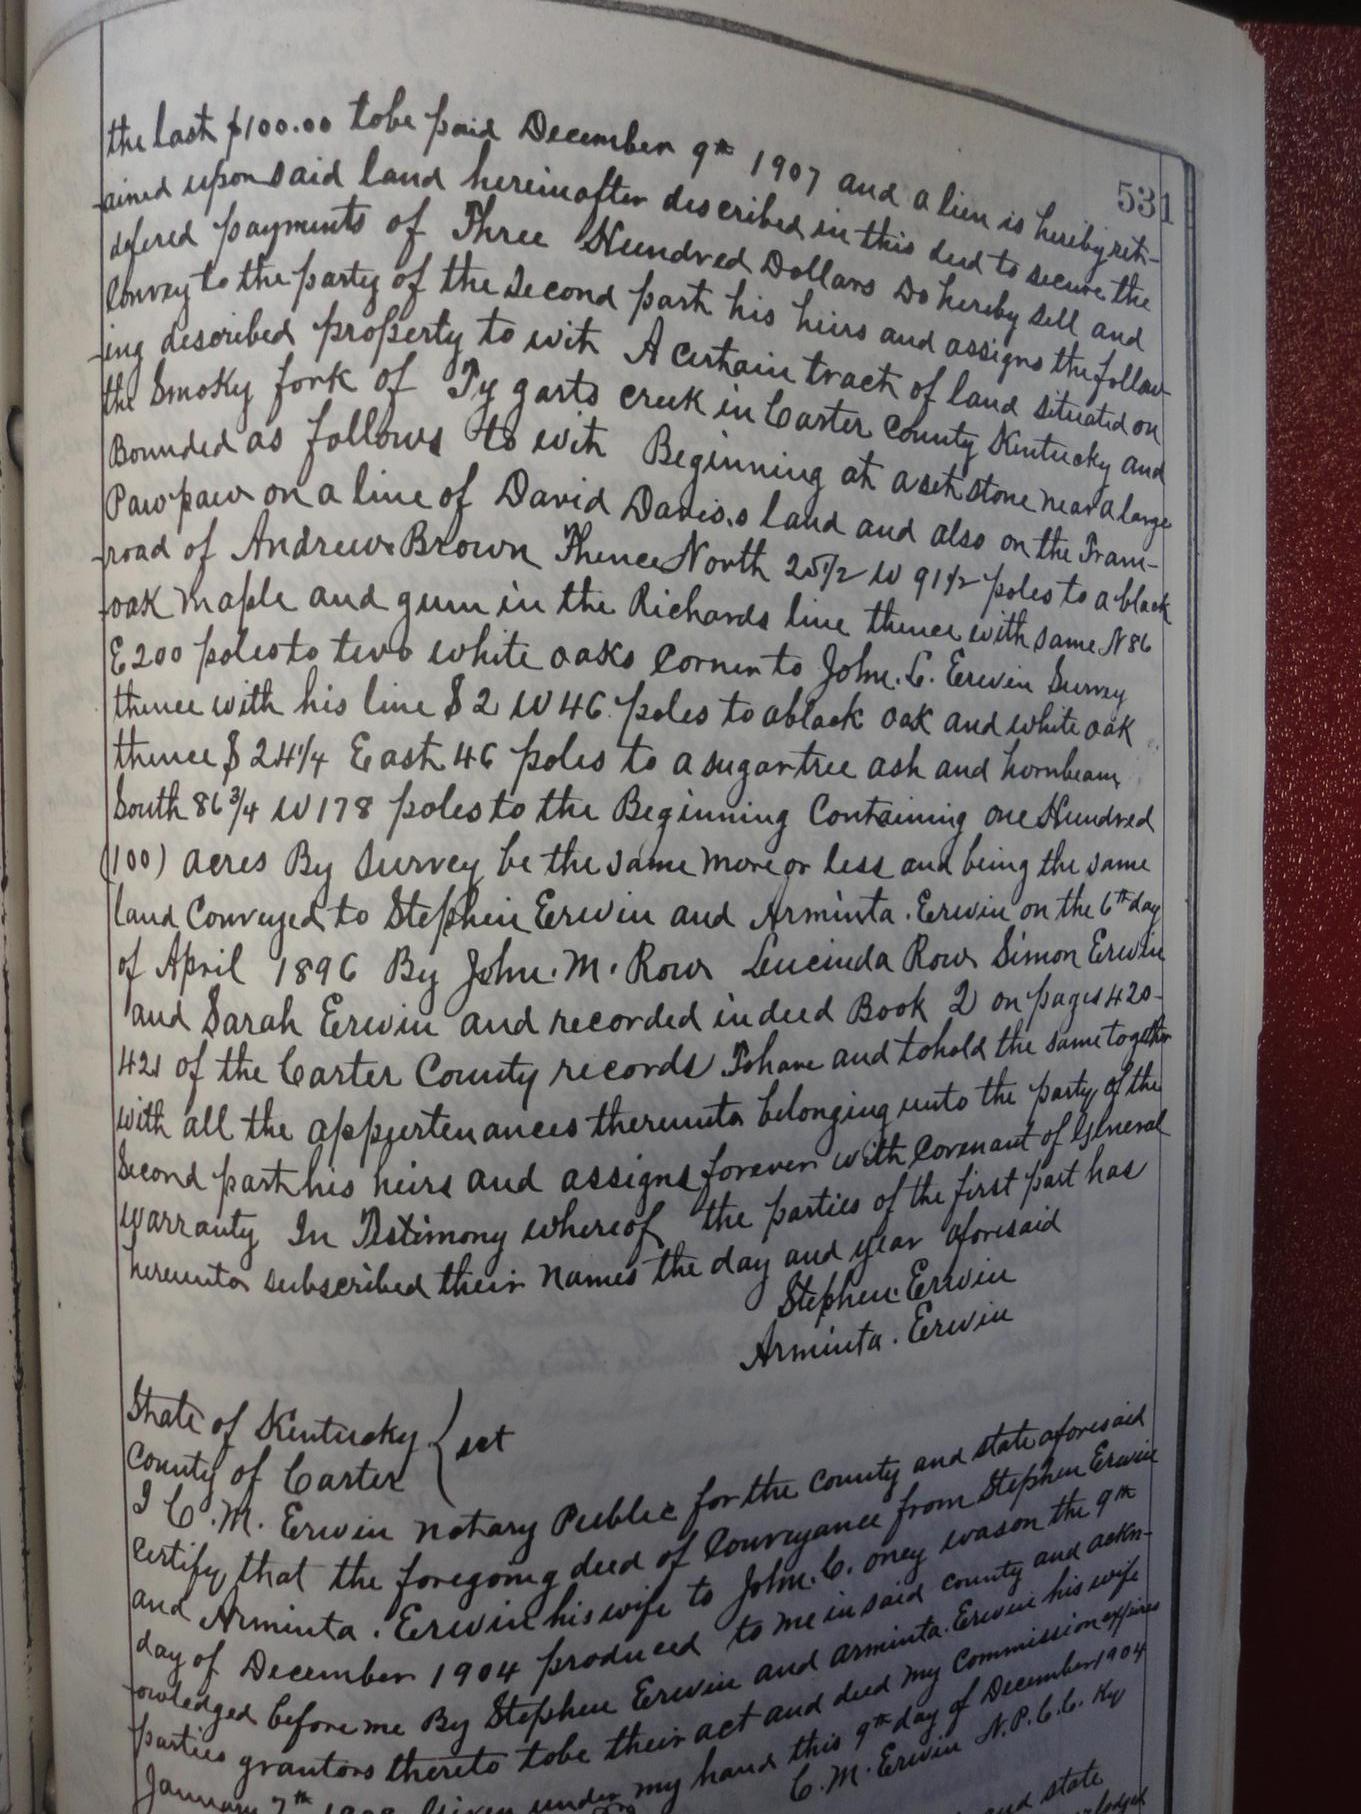 531
the last $100.00 tobe paid December 9th 1907 and a lien is hereby ret-
-ained upon said land hereinafter described in this deed to secure the
defered payments of Three Hundred Dollars Do hereby sell and
Convey to the party of the Second part his heirs and assigns the follow-
-ing described property to with A certain tract of land situated on
the Smoky fork of Tygarts creek in Carter County Kentucky and
Bounded as follows to with Beginning at a set stone near a large
Paw paw on a line of David Davis,s land and also on the Tram-
-road of Andrew Brown Thence North 25 1/2 W 91 1/2 poles to a black
-oak maple and gum in the Richards line thence with same N 86
E 200 poles to two white oaks Corner to John. L. Erwin Survey
thence with his line S 2 W 46 poles to a black oak and white oak
thence S 24 1/4 East 46 poles to a sugartree ash and hornbeam
South 86 3/4 W 178 poles to the Beginning Containing one Hundred
(100) acres By Survey be the same more or less and being the same
land Conveyed to Stephen Erwin and Arminta. Erwin on the 6th day
of April 1896 By John. M. Row Lucinda Row Simon Erwin
and Sarah Erwin and recorded in deed Book 2 on pages 420-
421 of the Carter County records To have and to hold the same together
with all the appurtenances thereunto belonging unto the party of the
Second part his heirs and assigns forever with Covenant of General
warranty In Testimony whereof the parties of the first part has
hereunto subscribed their names the day and year aforesaid
Stephen. Erwin
Arminta. Erwin
State of Kentucky
County of Carter { sct
I C. M. Erwin notary Public for the County and state aforesaid
certify that the foregoing deed of Conveyance from Stephen Erwin
and Arminta. Erwin his wife to John. C. oney was on the 9th
day of December 1904 produced to me in said county and ackn-
-owledged before me By Stephen Erwin and Arminta. Erwin his wife
parties grantors thereto tobe their act and deed my Commission expires
January 7th Given under my hand this 9th day of December 1904
C. M. Erwin N. P. C. C. Ky
and state